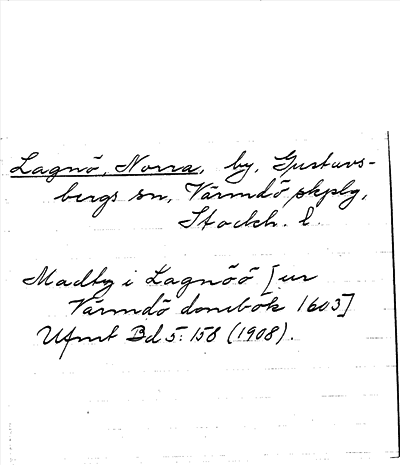 Lagnö, Norra, by, Gustavs-
bergs sn, Värmdö skplg,
Stockh. l.
Madtz i Lagnöö [ur
Värmdö dombok 1603]
Ufmt Bd 5: 158 (1908).